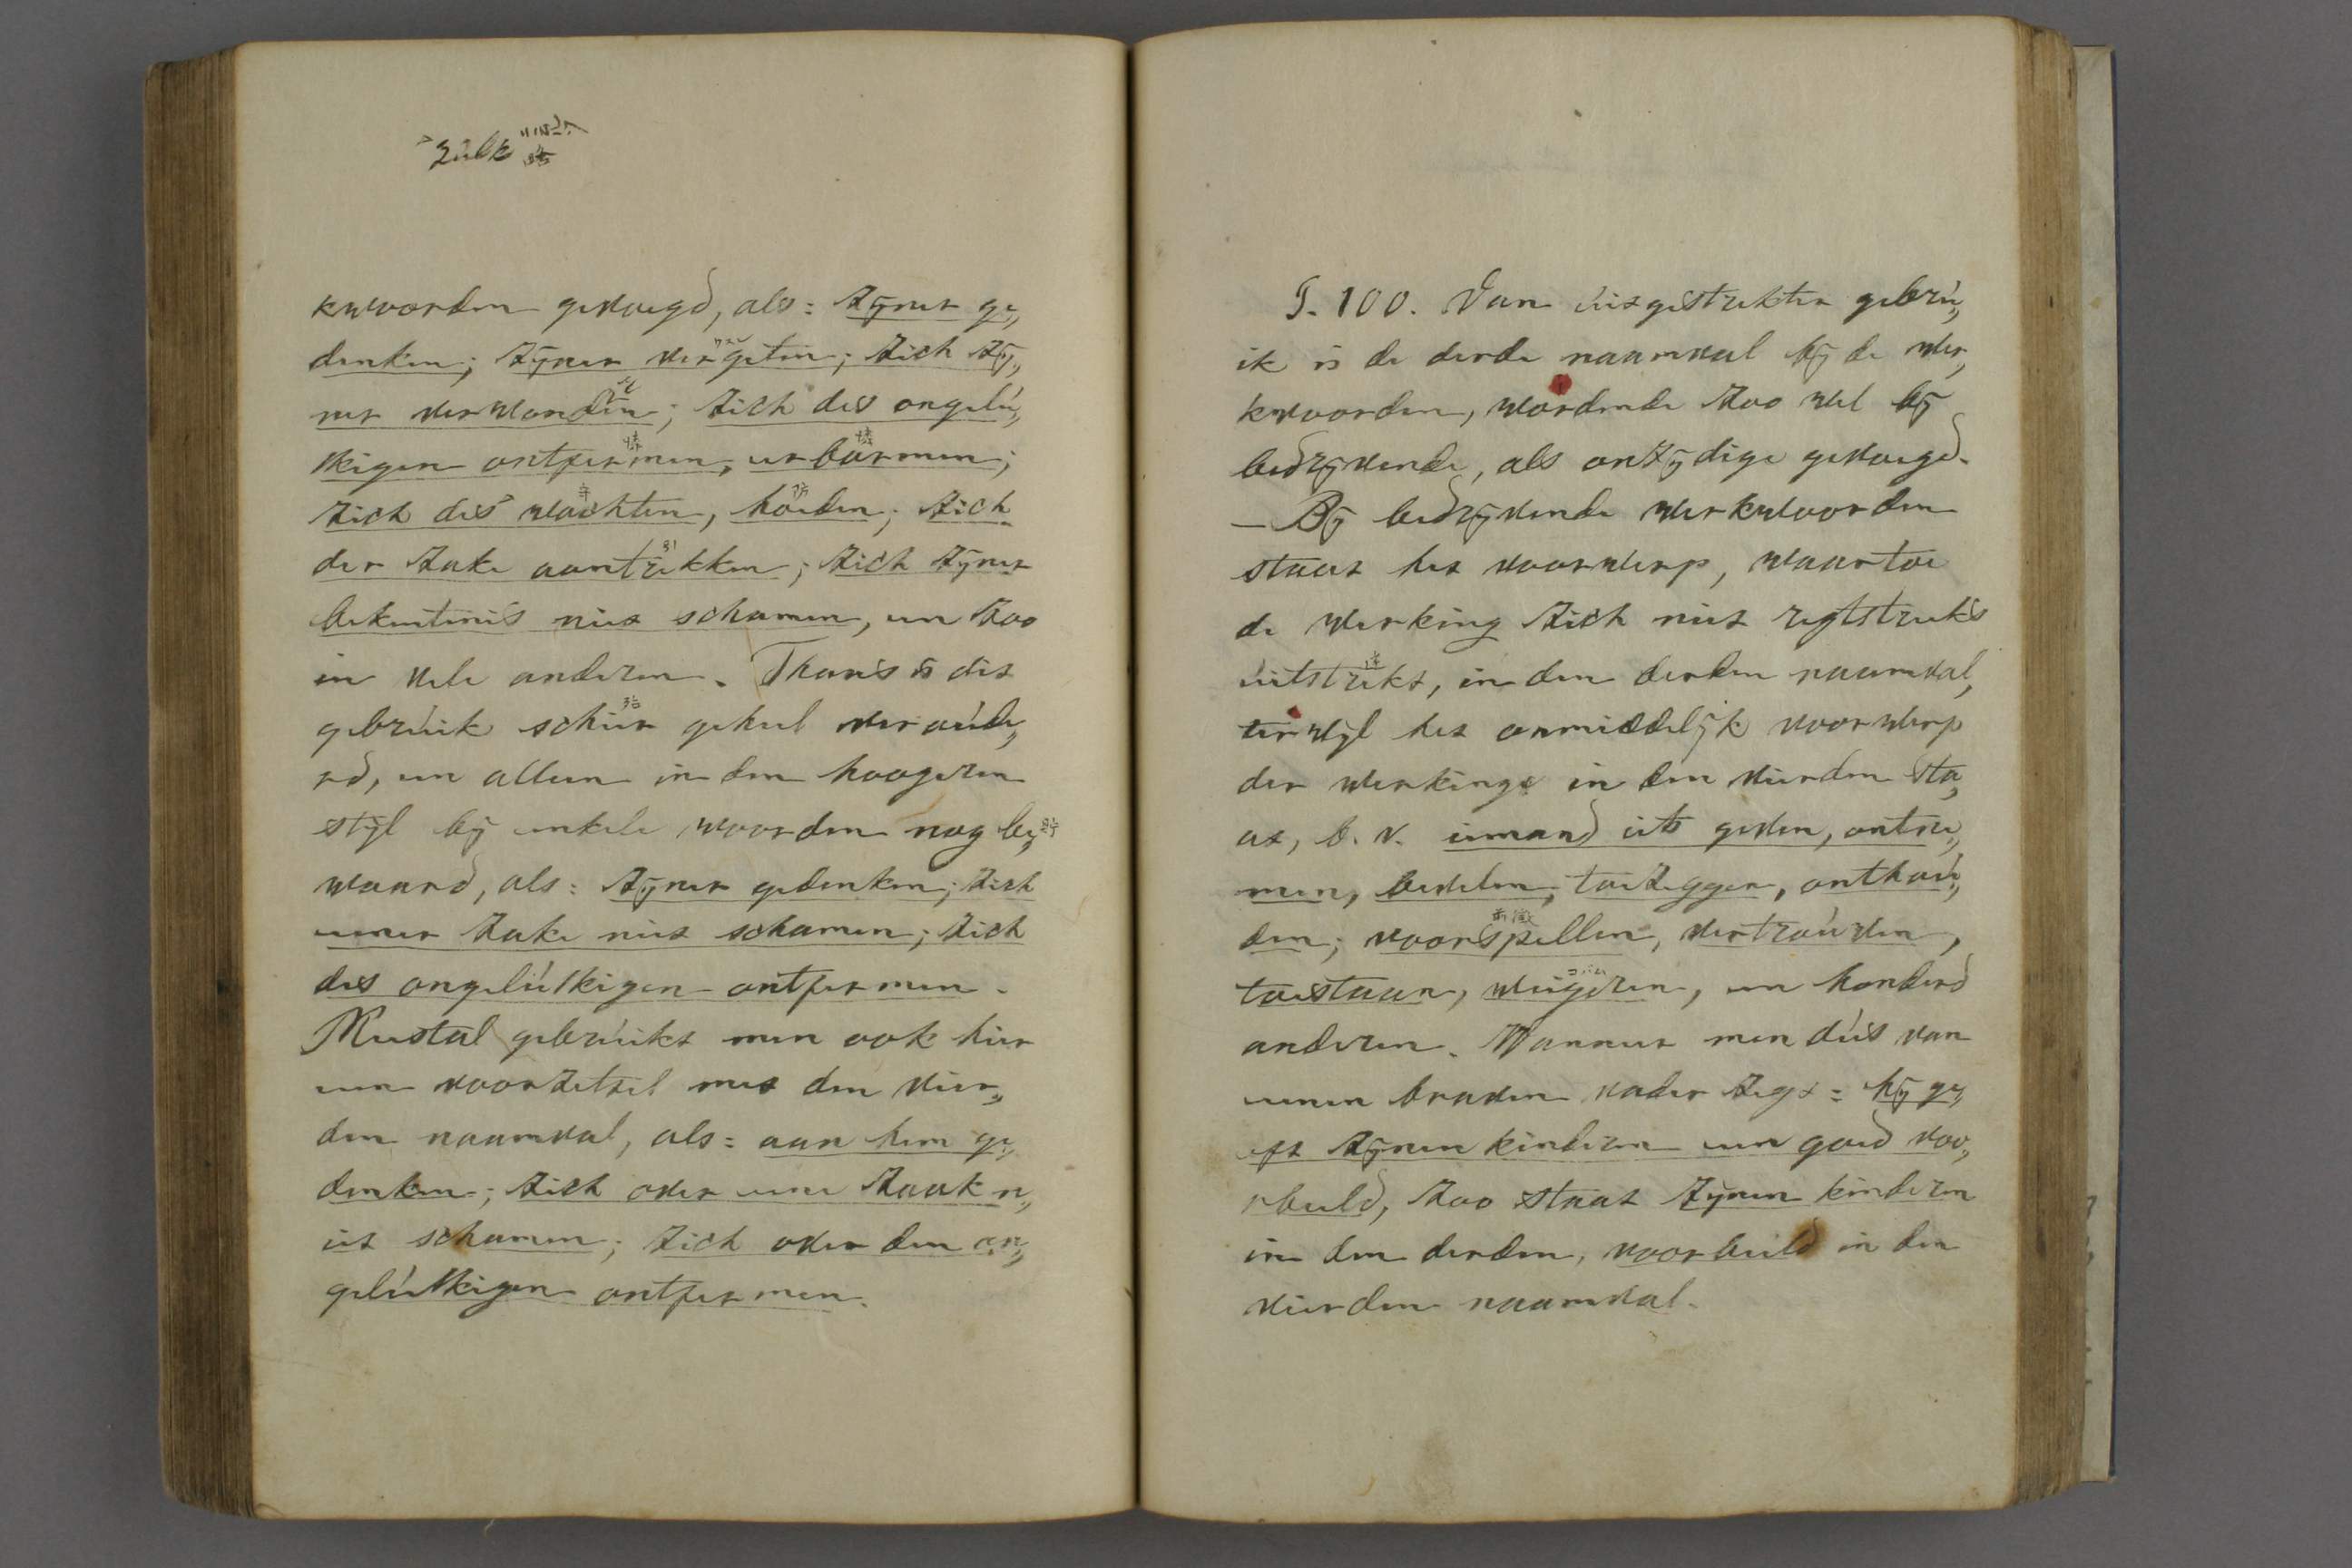 zulk
kwoorden gevoegd, als: zijner ge„
denken; zijner vergeten; zich zij„
ner verwonden; zich des ongelu„
kkigen ontfermen, erbarmen;
zich des wachten, hoeden; zich
der zake aantrekken; zich zijner
bekentenis niet schamen, en zoo
in vele anderen. Thans is dit
gebruik schier geheel verande„
rd, en alleen in den hoogeren
stijl bij enkele woorden nog be„
waard, als: zijner gedenken; zich
eener zake niet schamen; zich
des ongelukkigen ontfermen.
Meestal gebruikt men ook hier
een voorzetsel met den vier„
den naamval, als: aan hem ge„
denken; zich over eene zaak n„
iet schamen; zich over den on„
gelukkigen ontfermen.
§. 100. Van uitgestrekter gebru„
ik is de derde naamval bij de wer„
kwoorden, wordende zoo wel bij
bedrijvende, als onzijdige gevoegd.
— Bij bedrijvende werkwoorden
staat het voorwerp, waartoe
de werking zich niet regtstreeks
uitstrekt, in den derden naamval,
terwijl het onmiddelijk voorwerp
der werkinge in den vierden sta„
at, b. v. iemand iets geven, ontne„
men, bevelen, toezeggen, onthou„
den; voorspellen, vertrouwen,
toestaan, weigeren, en honderd
anderen. Wanneer men dus van
eenen braven vader zegt: hij ge„
eft zijnen kinderen een goed voo„
rbeeld, zoo staat zijnen kinderen
in den derden, voorbeeld in den
vierden naamval.